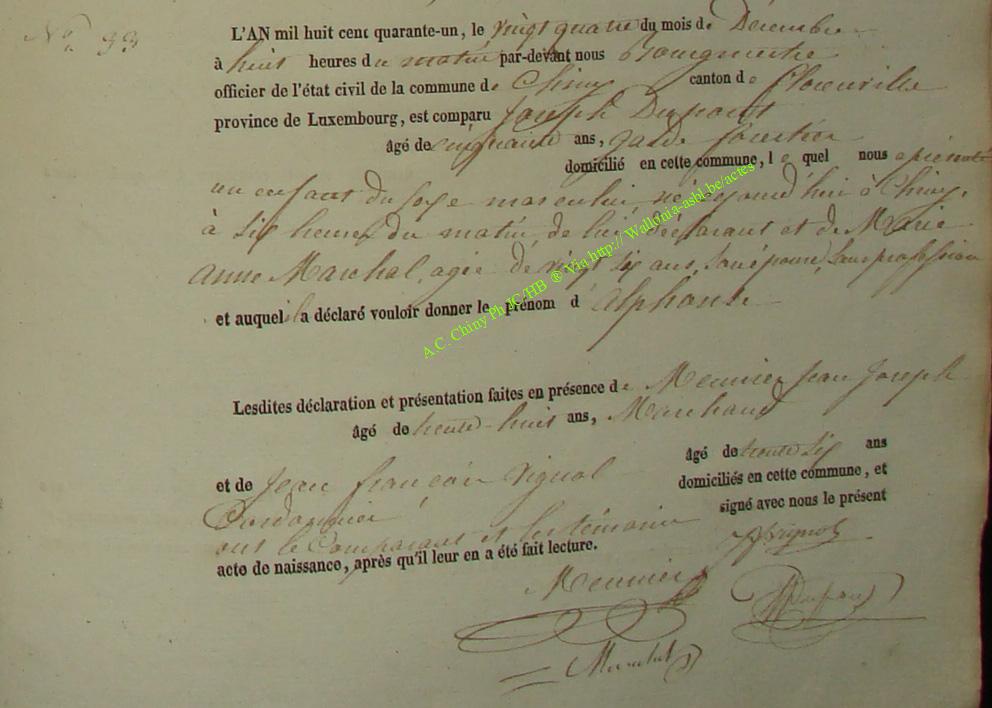 No. 33
L'AN mil huit cent quarante-un, le vingt quatre du mois de Décembre
à huit heures du matin par-devant nous Bourgmestre
officier de l'état civil de la commune de Chiny canton de Florenville
province de Luxembourg, est comparu Joseph Dupont
âgé de cinquante ans, garde forestier
domicilié en cette commune, le quel nous a présenté
un enfant du sexe masculin né aujourd'hui à Chiny,
à six heures du matin, de lui déclarant et de Marie
Anne Marchal, agée de vingt six ans, son épouse, sans profession
et auquel il a déclaré vouloir donner le prénom d'Alphonse
A.C. Chiny Ph JC-HB ® Via http:// Wallonia-asbl.be/actes
Lesdites déclaration et présentation faites en présence de Meunier Jean Joseph
âgé de trente-huit ans, Marchand
et de Jean françois Vignol âgé de trente six ans
Cordonnier domiciliés en cette commune, et
ont le Comparant et les témoins signé avec nous le présent
acte de naissance, après qu'il leur en a été fait lecture.
Vignol
Meunier
Dupont